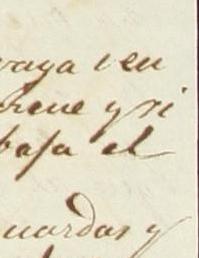 vaya ven
tiene y si
basa el
uardas y